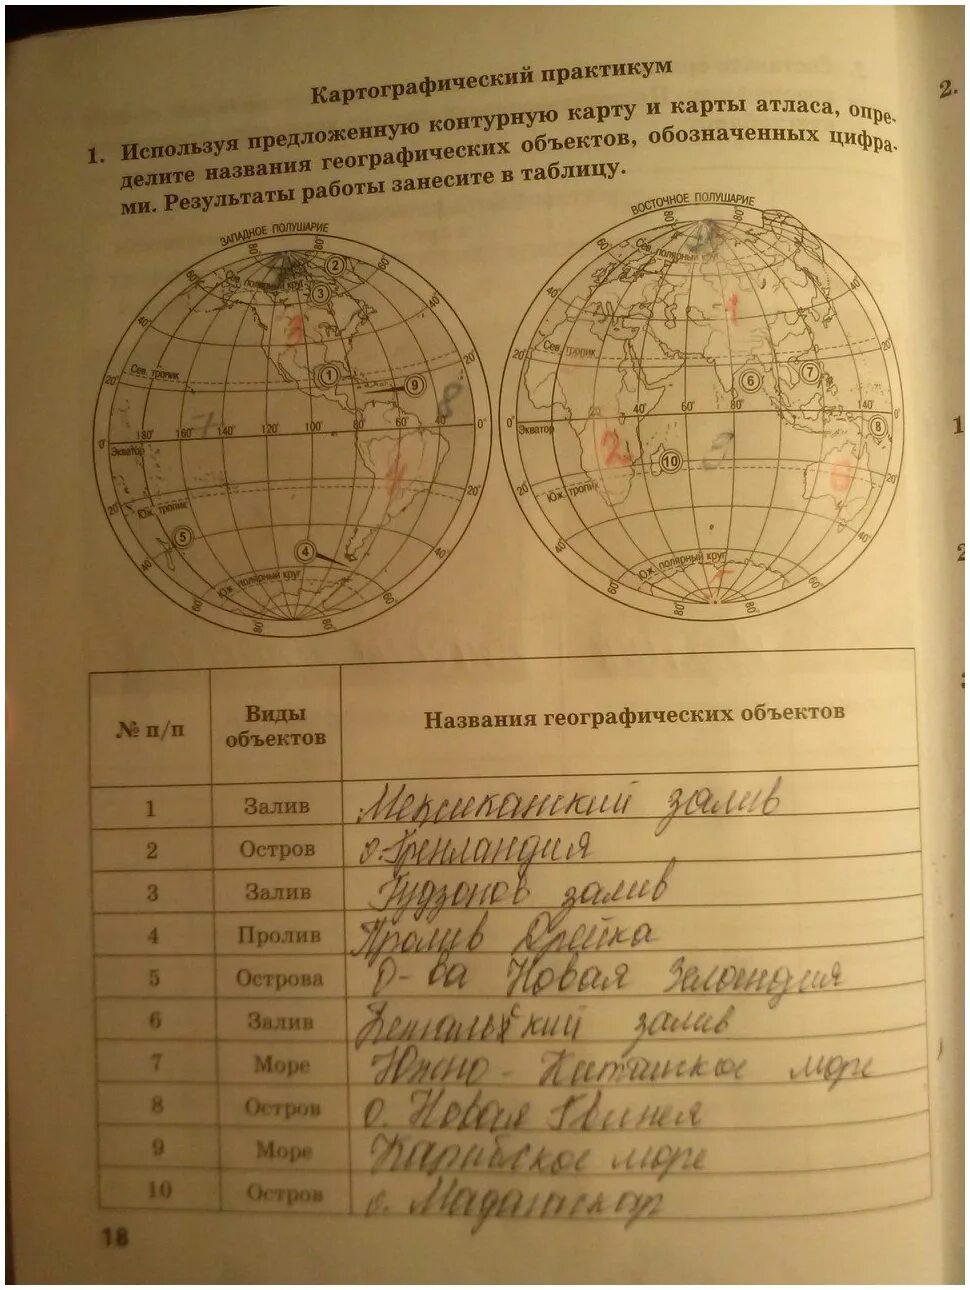 Картографический практикум
2.
1. Используя предложенную контурную карту и карты атласа, опре-
делите названия географических объектов, обозначенных цифра-
ми. Результаты работы занесите в таблицу.
ЗАПАДНОЕ ПОЛУШАРИЕ
ВОСТОЧНОЕ ПОЛУШАРИЕ
Сев. полярный круг
Сев. полярный круг
Сев. тропик
Сев. тропик
180° 160° 140° 120° 100° 80° 60° 40°
Экватор
20° 40° 60° 80° 140°
Экватор
Юж. тропик
Юж. тропик
Юж. полярный круг
Юж. полярный круг
1 2 3 4 5 9
6 7 8 10
№ п/п Виды объектов Названия географических объектов
1 Залив Мексиканский залив
2 Остров о. Гренландия
3 Залив Гудзонов залив
4 Пролив Пролив Дрейка
5 Острова О-ва Новая Зеландия
6 Залив Бенгальский залив
7 Море Южно-Китайское море
8 Остров о. Новая Гвинея
9 Море Карибское море
10 Остров о. Мадагаскар
18